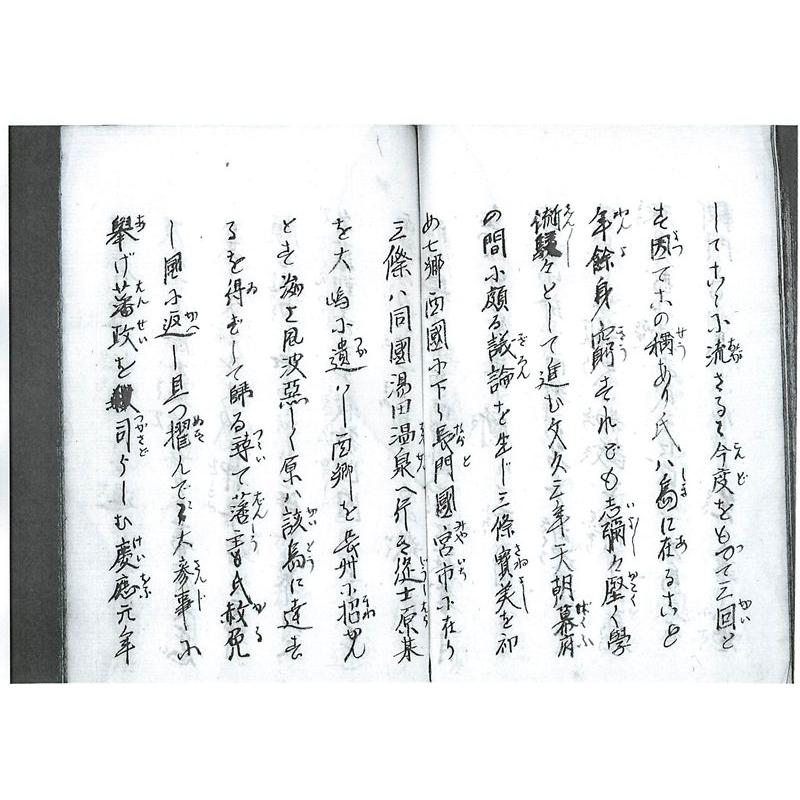 してこゝに流さるゝ今度をもつて三回と
す因てこの稱あり氏ハ島に在ること
年餘身窮すれども志彌々堅く學
術駸々として進む文久三年天朝幕府
の間に頗る議論を生じ三條實美を初
め七卿西國に下り長門國宮市に在り
三條ハ同國湯田温泉へ行き從士原某
を大嶋に遣ハし西郷を長州に招かん
とす海上風波惡しく原ハ該島に達す
るを得ずして歸る尋て藩主氏赦免
し風に返し且つ擢んで大參事に
擧げ藩政を司らしむ慶應元年